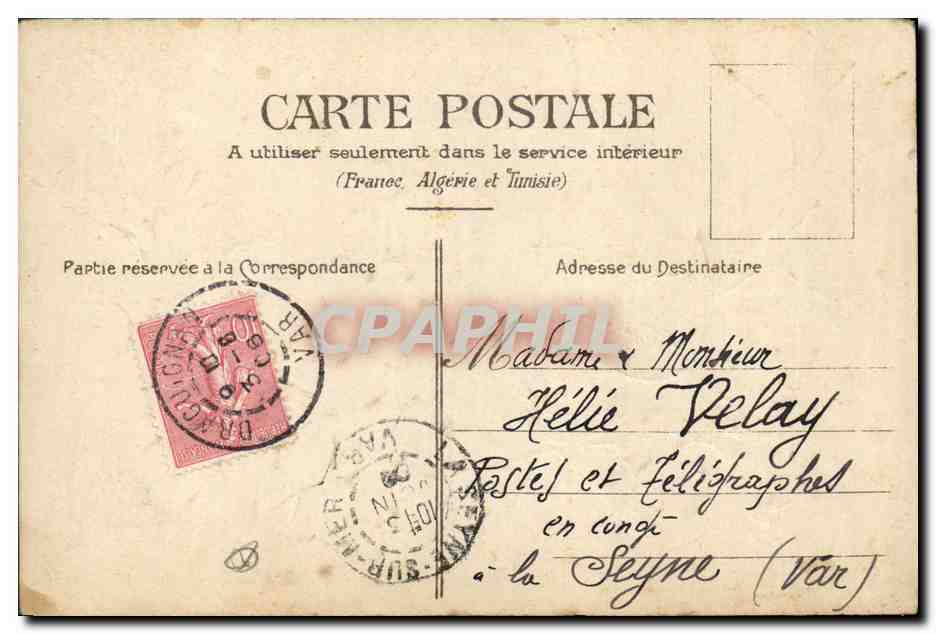 CARTE POSTALE
A utiliser seulement dans le service intérieur
(France, Algérie et Tunisie)
Partie réservée à la Correspondance
Adresse du Destinataire
CPAPHIL
DRAGUIGNAN
VAR
10
Madame & Monsieur
Hélie Velay
Postes et Télégraphes
en congé
à la Seyne (Var)
LA SEYNE-SUR-MER
VAR